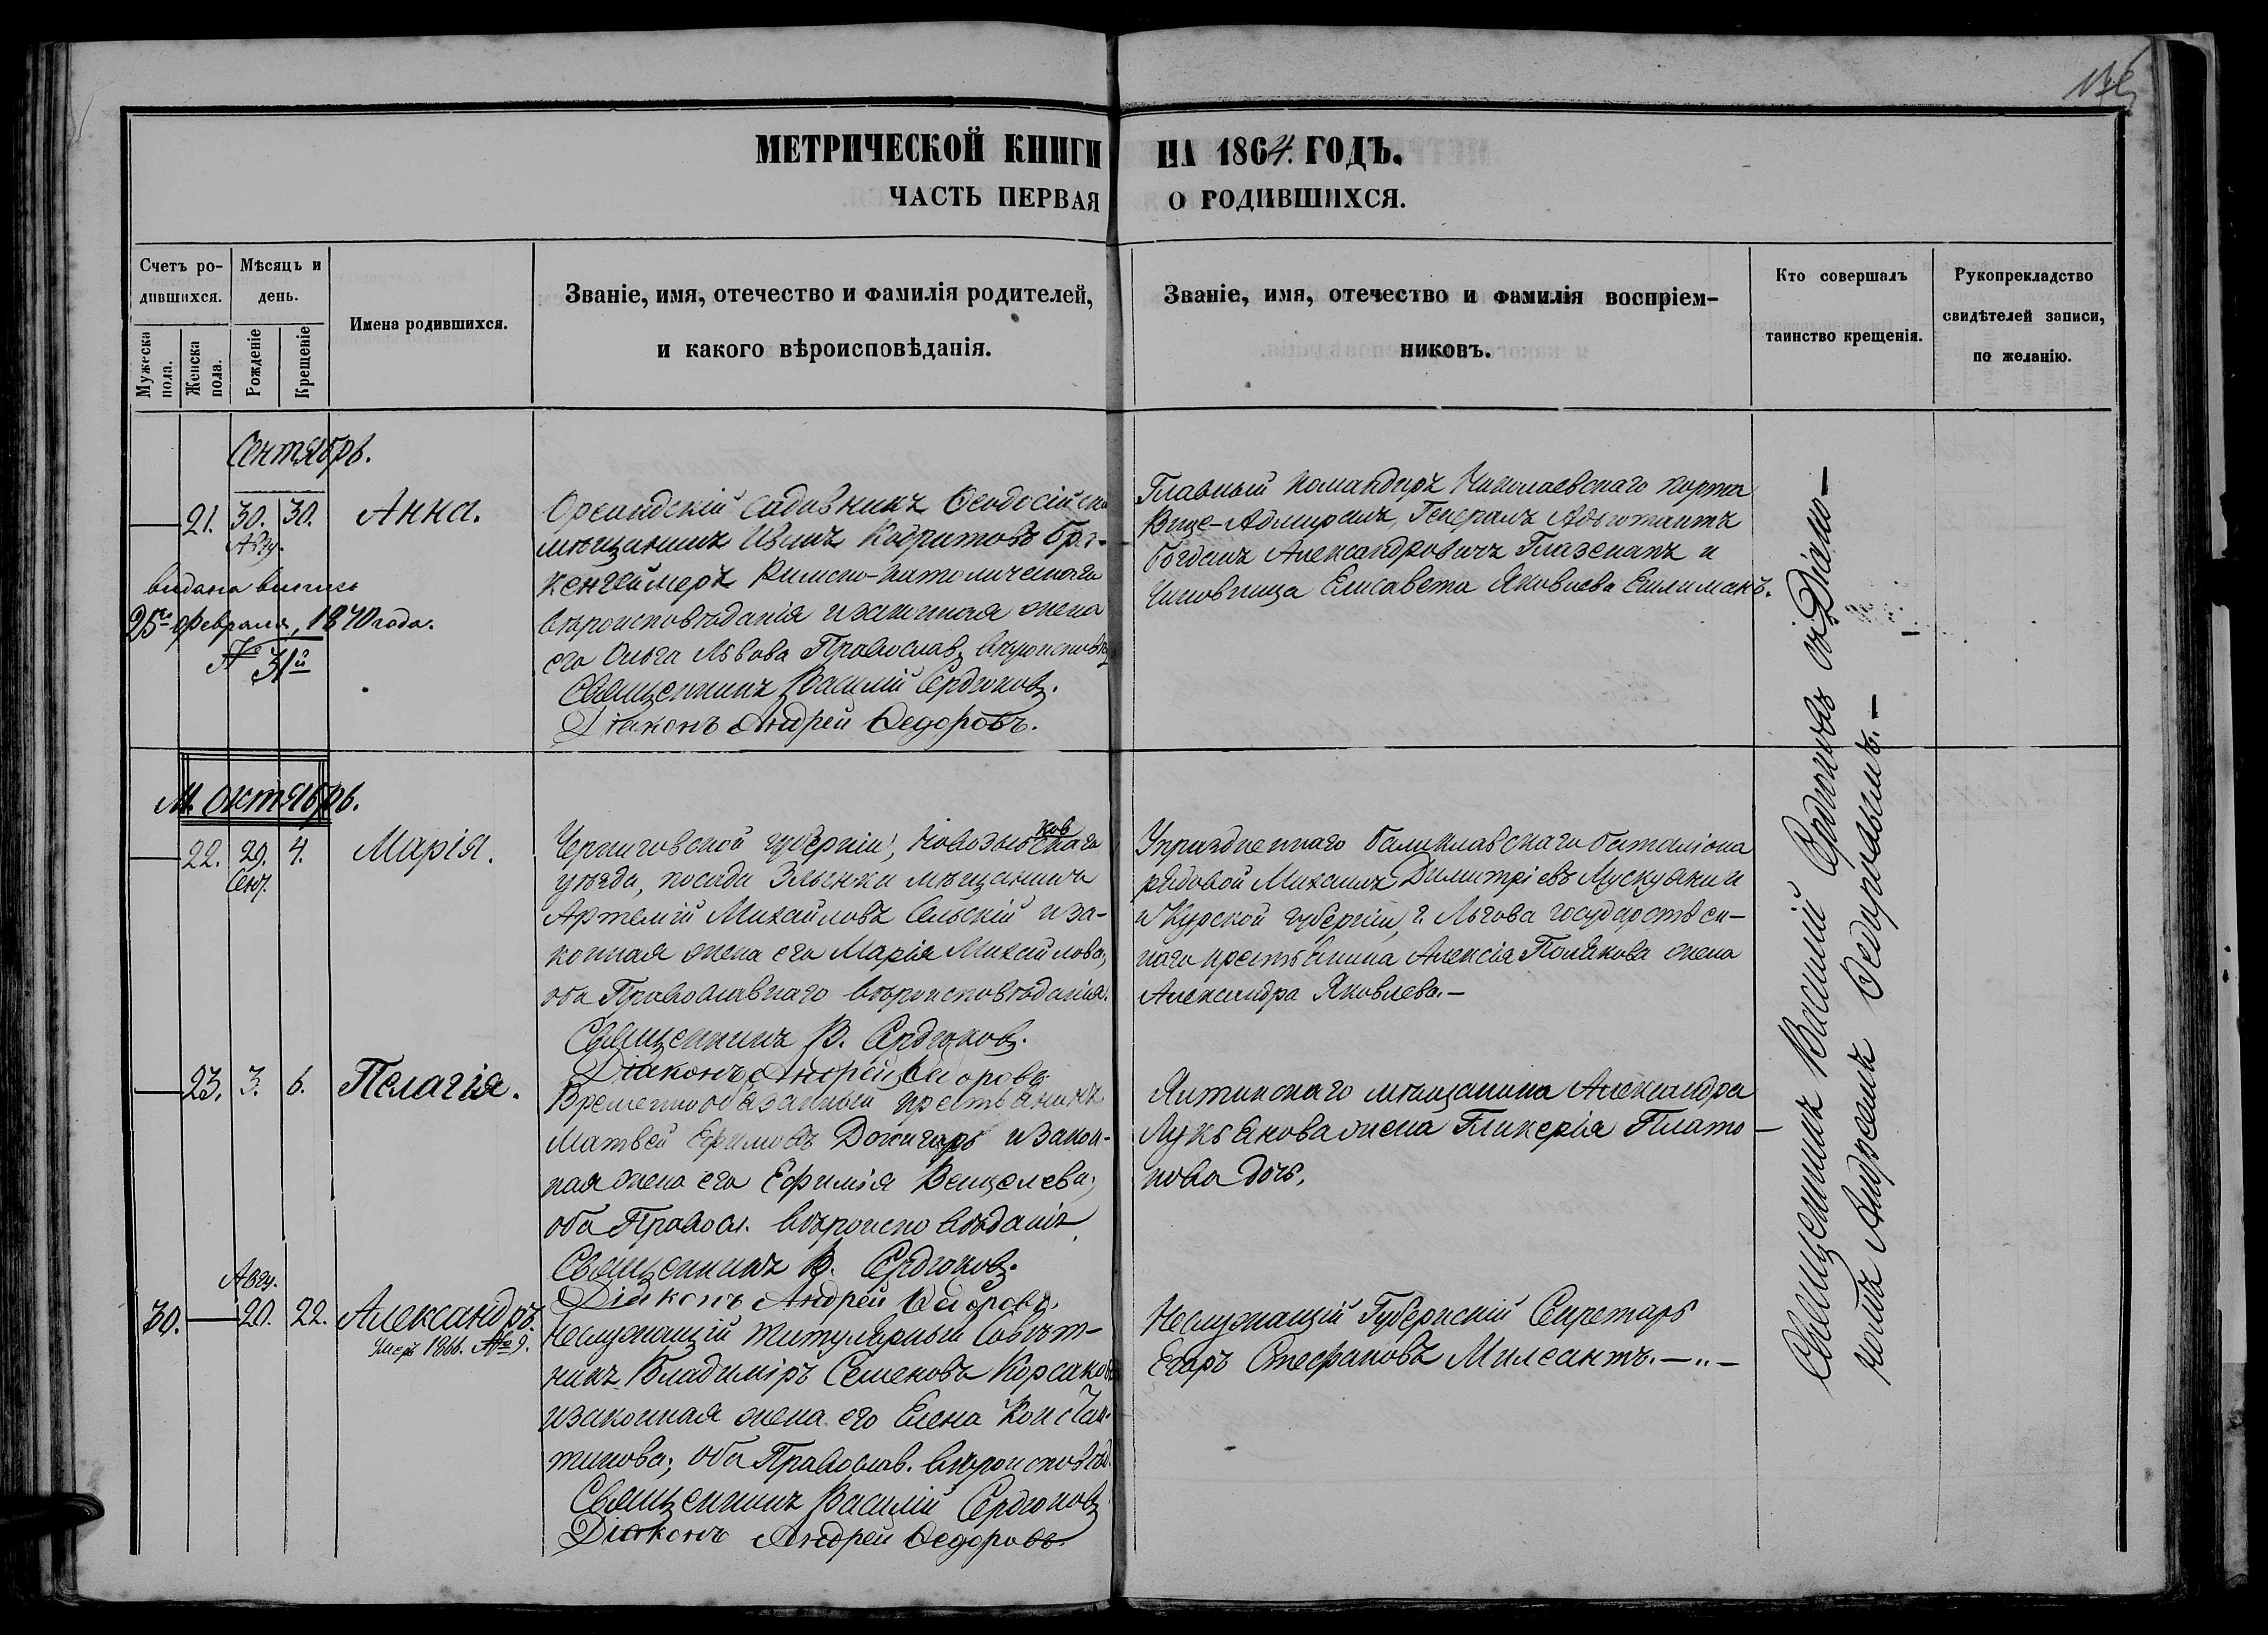 МЕТРИЧЕСКОЙ КНИГИ НА 1864. ГОДЪ.
ЧАСТЬ ПЕРВАЯ О РОДИВШИХСЯ.
Счетъ ро-
дившихся.
Мужеска
пола.
Женска
пола.
Мѣсяцъ и
день.
Рожденіе
Крещеніе
Имена родившихся.
Званіе, имя, отечество и фамилія родителей,
и какого вѣроисповѣданія.
Званіе, имя, отечество и фамилія воспріем-
никовъ.
Кто совершалъ
таинство крещенія.
Рукоприкладство
свидѣтелей записи,
по желанію.
Сентябрь.
21. 30. 30. Анна.
Авгу.
выдана выпись
25го февраля, 1870 года.
№ 31й
Ореандскій садовникъ Ѳеодосійскі
мѣщанинъ Иванъ
Римско-католическаго
вѣроисповѣданія и законная жена
его Ольга Львова Православ. вѣроисповѣд
Священникъ Василій Сердюковъ.
Діаконъ Андрей Ѳедоровъ.
Главный командиръ Николаевскаго порта
Вице-Адмиралъ, Генералъ Адъютантъ
Богданъ Александровичъ Глазенапъ и
Чиновница Елисавета Яковлева
М. Октябрь.
22. 29. 4. Марія.
Сент.
Черниговской губерніи, Новозыбковскаго
уѣзда, посада Злынки мѣщанинъ
Артемій Михайловъ Сельскій и за-
конная жена его Марія Михайлова;
оба Православнаго вѣроисповѣданія.
Священникъ В. Сердюковъ.
Діаконъ Андрей Ѳедоровъ.
Упраздненнаго балаклавскаго баталіона
рядовой Михаилъ Димитріевъ
и Курской губерніи, г. Льгова государствен-
наго крестьянина Алексія Полякова жена
Александра Яковлева.—
23. 3. 6. Пелагія.
Временнообязанный крестьянинъ
Матвей Ефимовъ и закон-
ная жена его Ефимія
оба Правосл. вѣроисповѣданія
Священникъ В. Сердюковъ.
Діаконъ Андрей Ѳедоровъ.
Ялтинскаго мѣщанина Александра
Лукьянова жена Гликерія Плато-
нова дочь.
Авгу.
30. — 20. 22. Александръ.
Умеръ 1866. № 9.
Неслужащій титулярный Совѣт-
никъ Владиміръ Семеновъ Корсаковъ
и законная жена его Елена Констан-
тинова; оба Православ. вѣроисповѣд.
Священникъ Василій Сердюковъ
Діаконъ Андрей Ѳедоровъ.
Неслужащій Губернскій Секретарь
Егоръ Стефановъ Милсантъ. — „ —
Священникъ Василій Сердюковъ съ Діако-
номъ Андреемъ Ѳедоровымъ.—